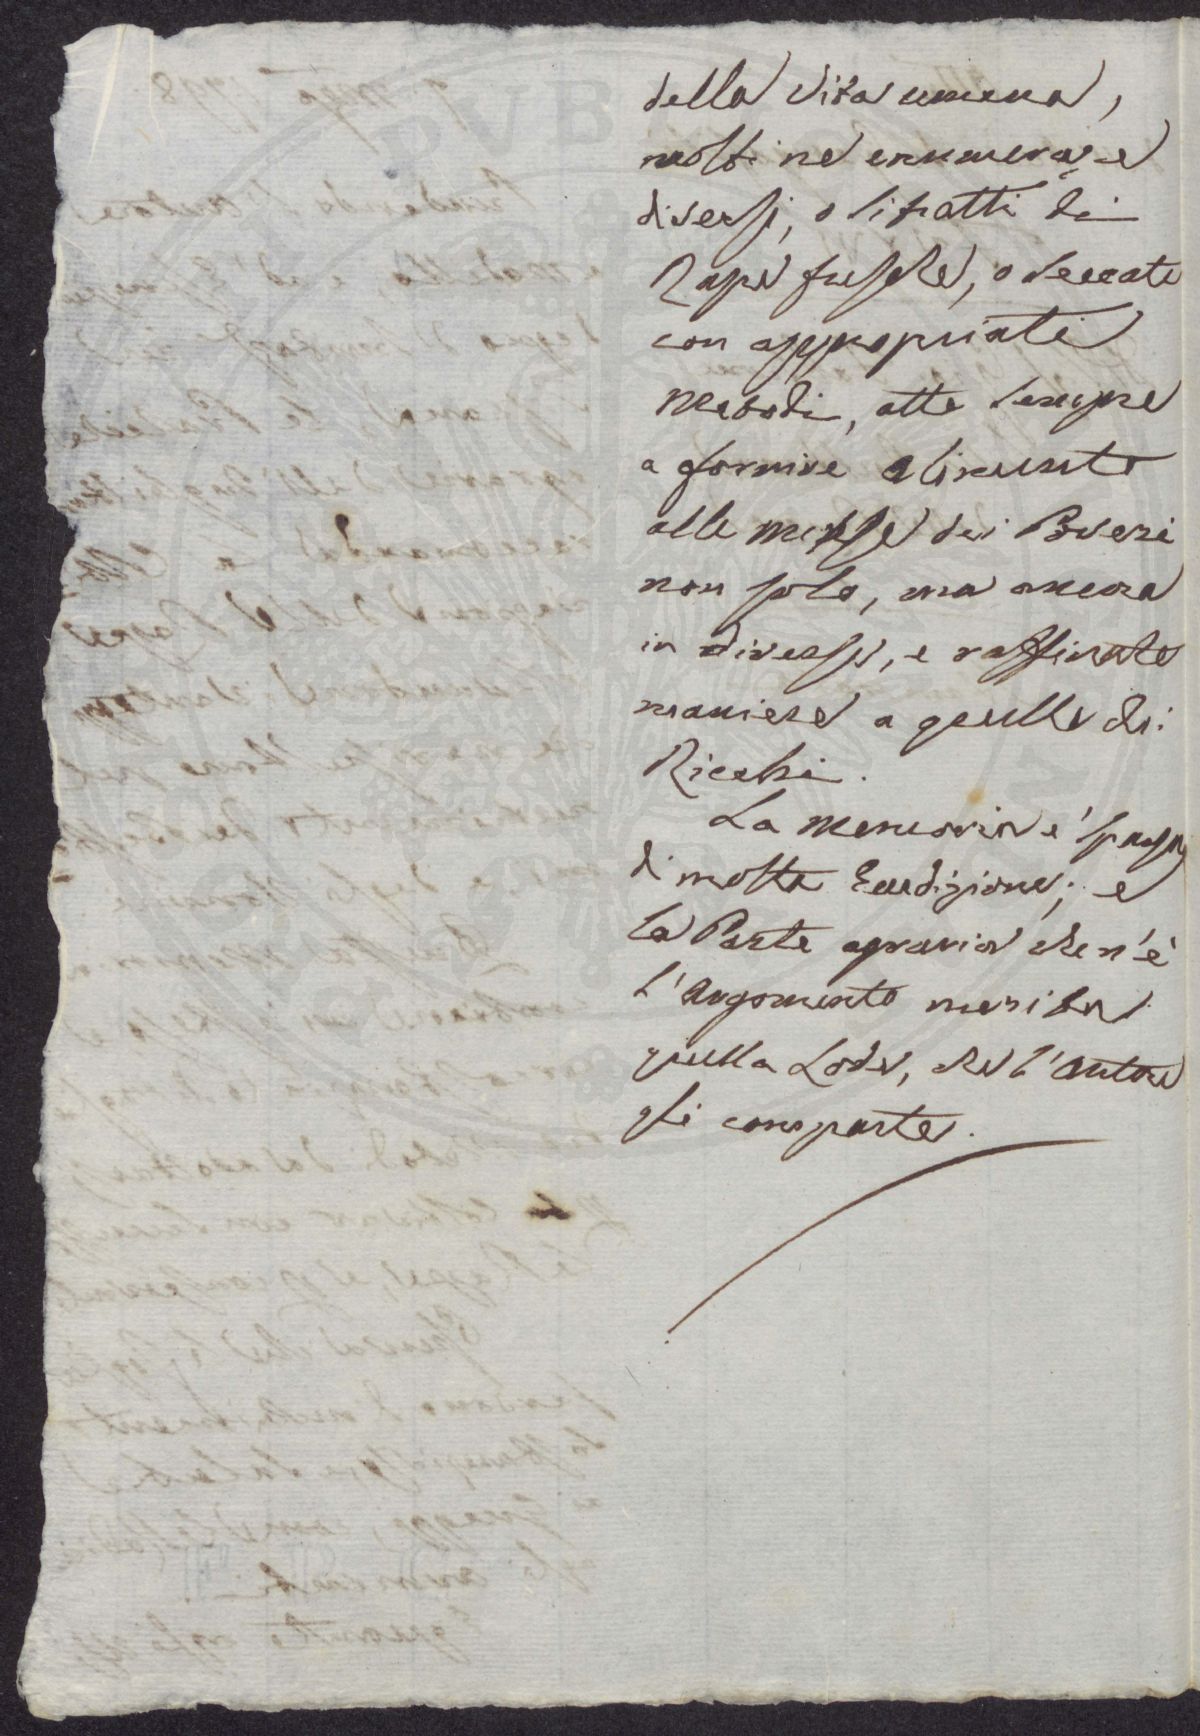 della Vita umana,
molti ne enumera, e
diversi, o li tratti di
Rape fresche, o seccate
con appropriati
Metodi, atte sempre
a fornire alimento
alle mense dei Poveri
non solo, ma ancora
in diverse, e raffinate
maniere a quelle dei
Ricchi.
La Memoria e' sparsa
di molta Erudizione; e
la Parte agraria che n'è
l'Argomento merita
quella Lode, che l'Autore
gli comparte.